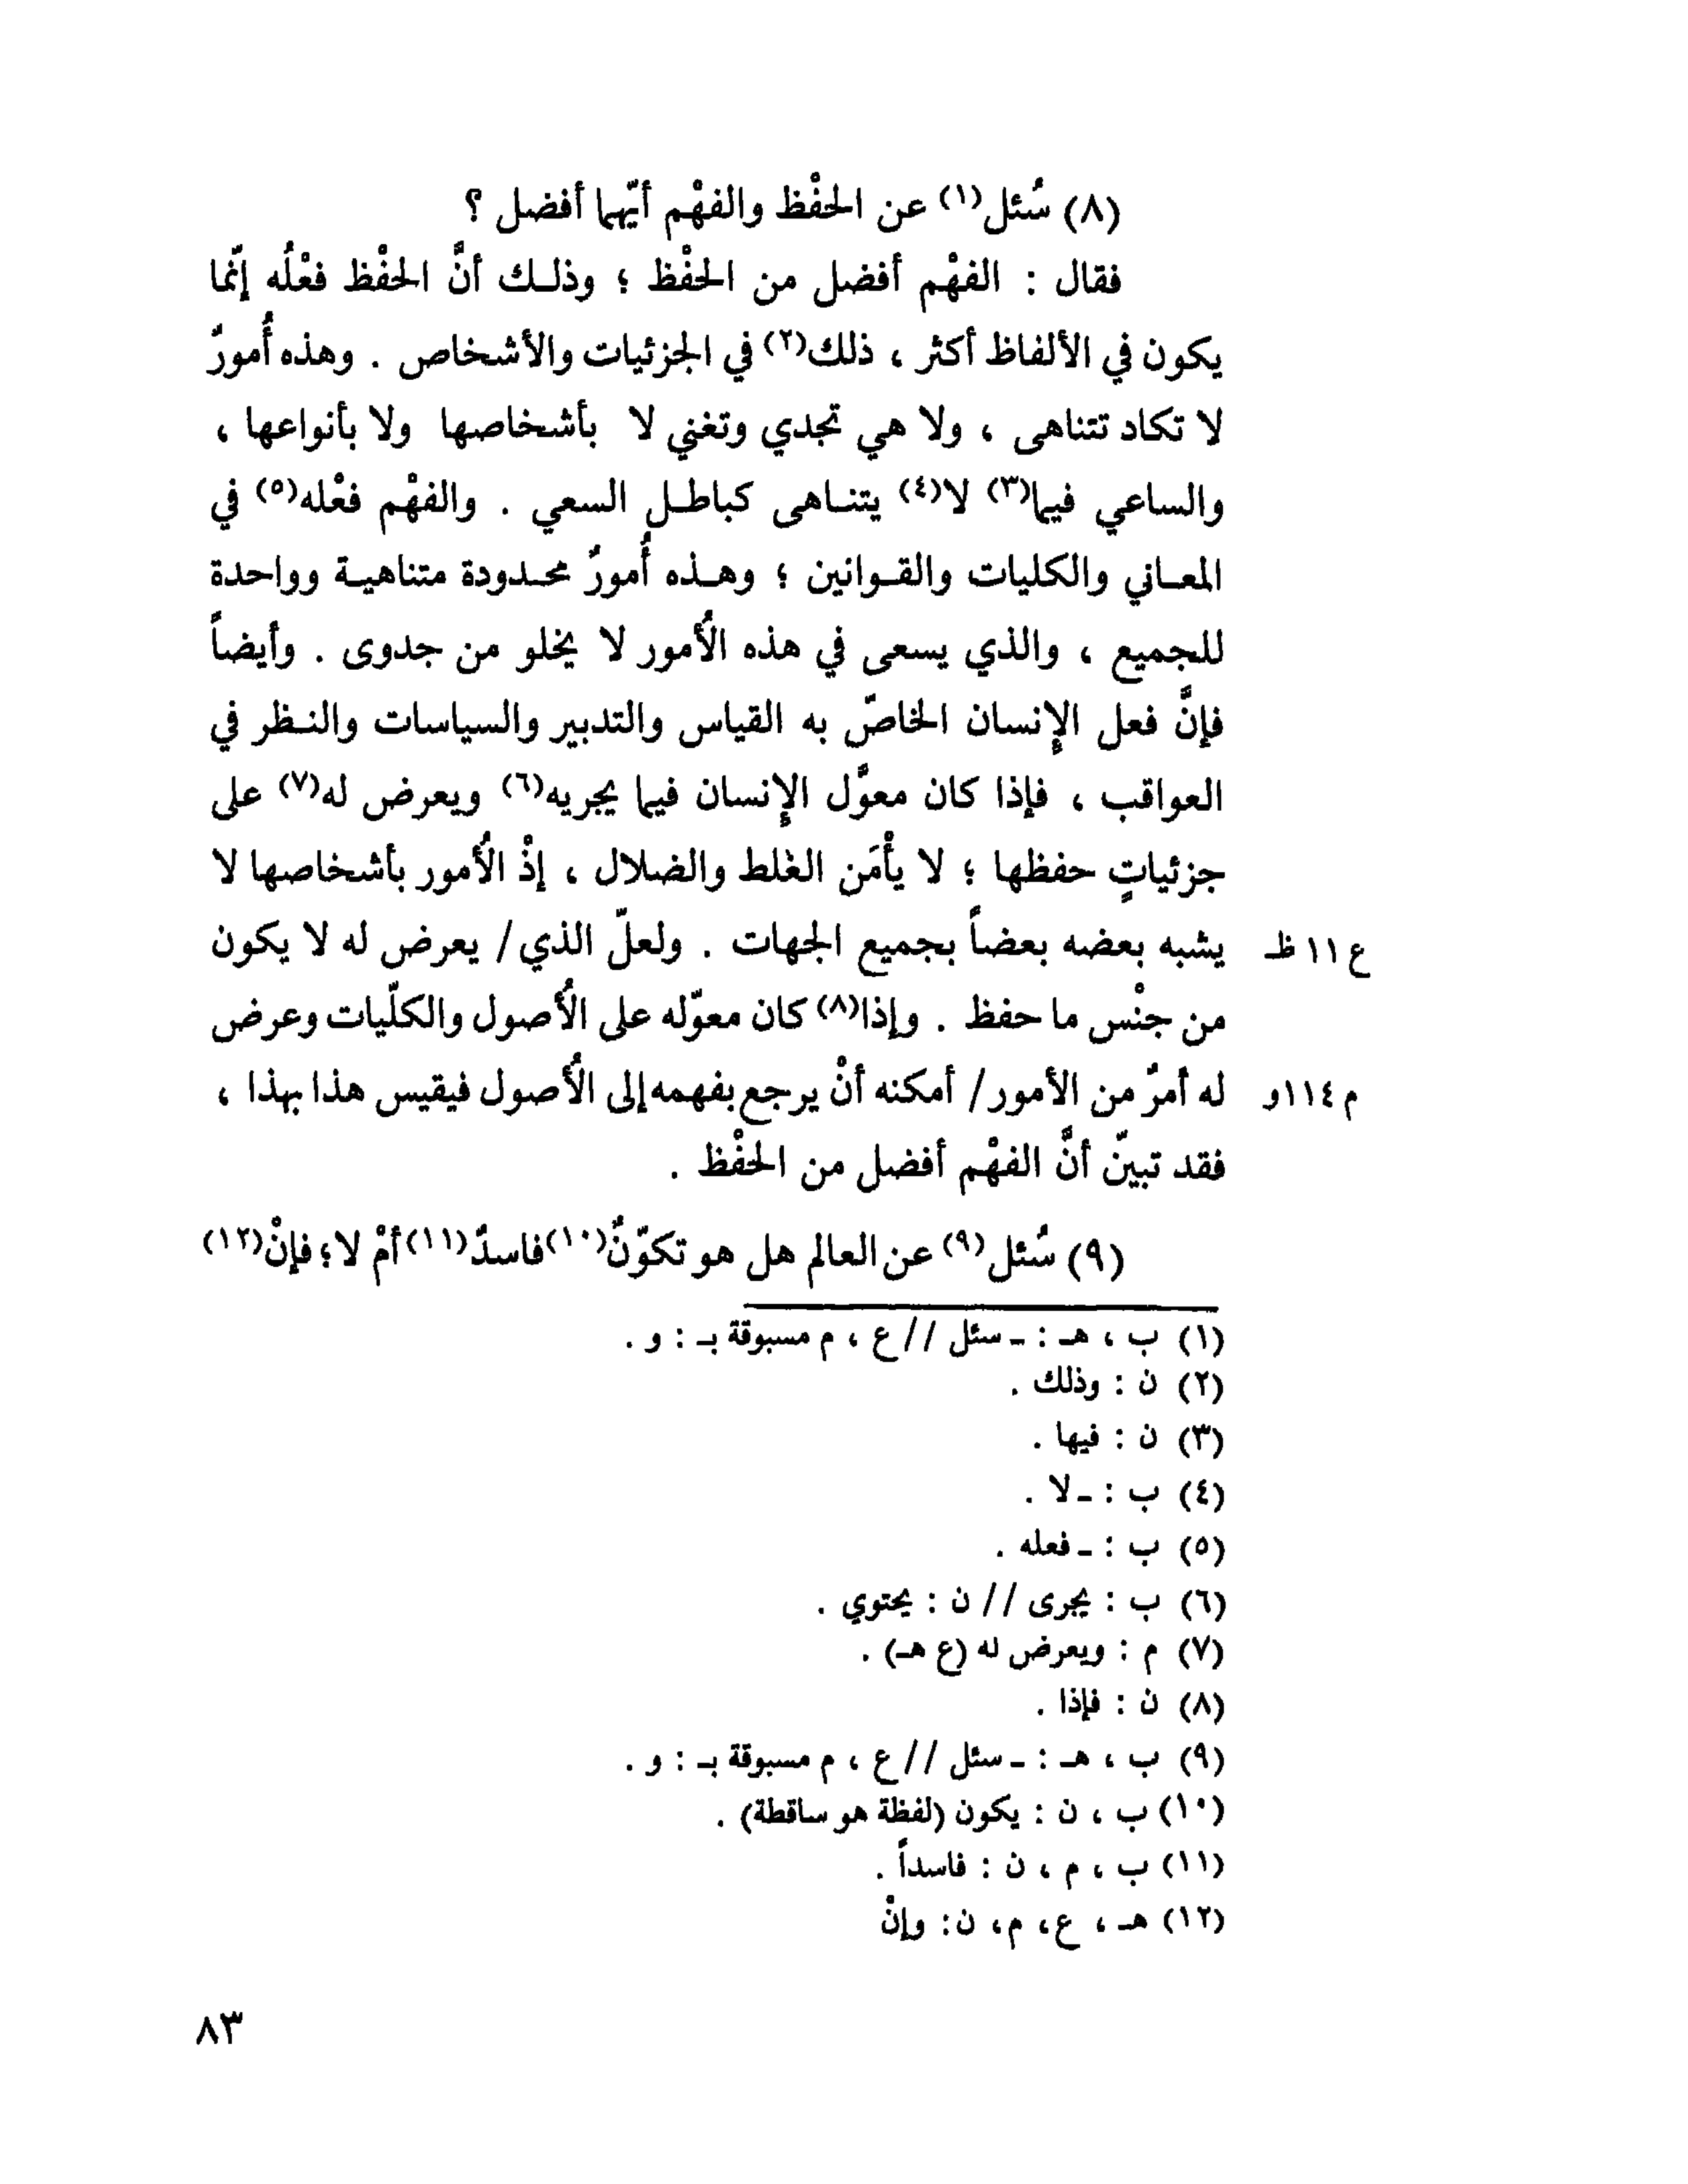 (٨) سُئل(١) عن الحفْظ والفهْم أيّهما أفضل ؟
فقال : الفهْم أفضل من الحفْظ ؛ وذلـك أنَّ الحفْظ فعْلُه إنّما
يكون في الألفاظ أكثر ، ذلك(٢) في الجزئيات والأشخاص . وهذه أُمورٌ
لا تكاد تتناهى ، ولا هي تجدي وتغني لا بأشخاصها ولا بأنواعها ،
والساعي فيما(٣) لا(٤) يتنـاهى كباطـل السعي . والفهْم فعْله(٥) في
المعـاني والكليات والقـوانين ؛ وهـذه أُمورٌ محـدودة متناهيـة وواحدة
للجميع ، والذي يسعى في هذه الأُمور لا يخلو من جدوى . وأيضاً
فإنَّ فعل الإنسان الخاصّ به القياس والتدبير والسياسات والنـظر في
العواقب ، فإذا كان معوَّل الإنسان فيما يجريه(٦) ويعرض له(٧) على
جزئياتٍ حفظها ؛ لا يأْمَن الغلط والضلال ، إذْ الأُمور بأشخاصها لا
يشبه بعضه بعضاً بجميع الجهات . ولعلّ الذي / يعرض له لا يكون ع ١١ ظـ
من جنْس ما حفظ . وإذا(٨) كان معوّله على الأُصول والكلّيات وعرض
له أمرٌ من الأمور / أمكنه أنْ يرجع بفهمه إلى الأُصول فيقيس هذا بهذا ، م ١١٤و
فقد تبينّ أنَّ الفهْم أفضل من الحفْظ .
(٩) سُئل(٩) عن العالم هل هو تكوّنٌ(١٠) فاسدٌ(١١) أمْ لا ؛ فإنْ(١٢)
(١) ب ، هـ : ـ سئل // ع ، م مسبوقة بـ : و .
(٢) ن : وذلك .
(٣) ن : فيها .
(٤) ب : ـ لا .
(٥) ب : ـ فعله .
(٦) ب : يجرى // ن : يحتوي .
(٧) م : ويعرض له (ع هـ) .
(٨) ن : فإذا .
(٩) ب ، هـ : ـ سئل // ع ، م مسبوقة بـ : و .
(١٠) ب ، ن : يكون (لفظة هو ساقطة) .
(١١) ب ، م ، ن : فاسداً .
(١٢) هـ ، ع، م، ن: وإنْ
٨٣